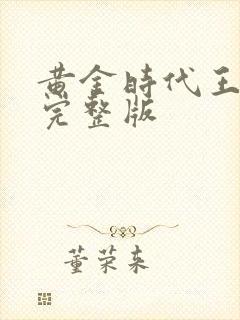 黄金時代王
完整版
董荣来